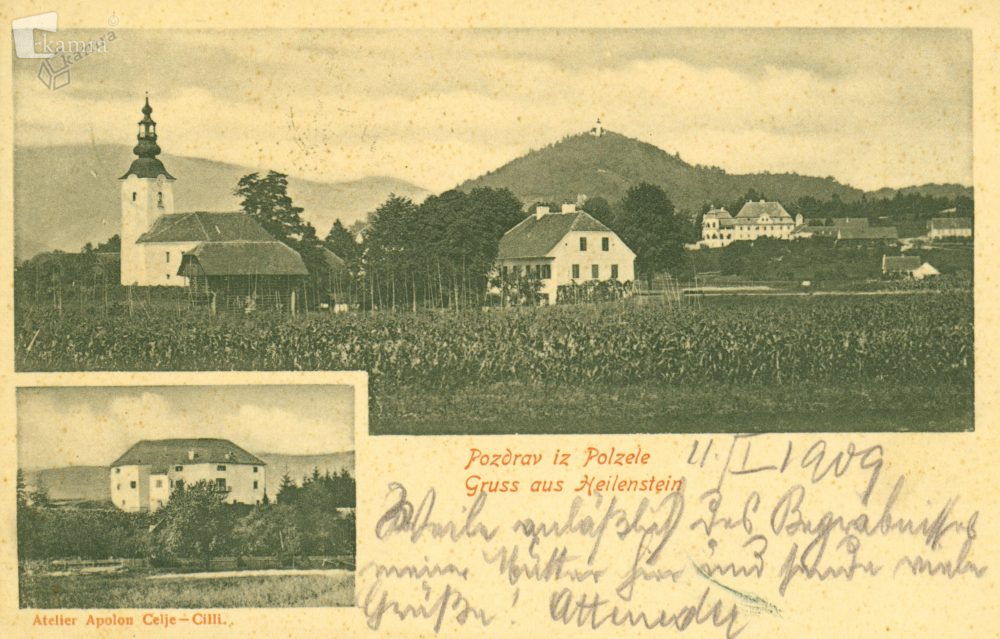 kamra
kamra
Pozdrav iz Polzele
Gruss aus Heilenstein
11/I 1909
Weile anläßlich des Begräbnisses
meiner Mutter hier und sende viele
Grüße!
Atelier Apolon Celje—Cilli.